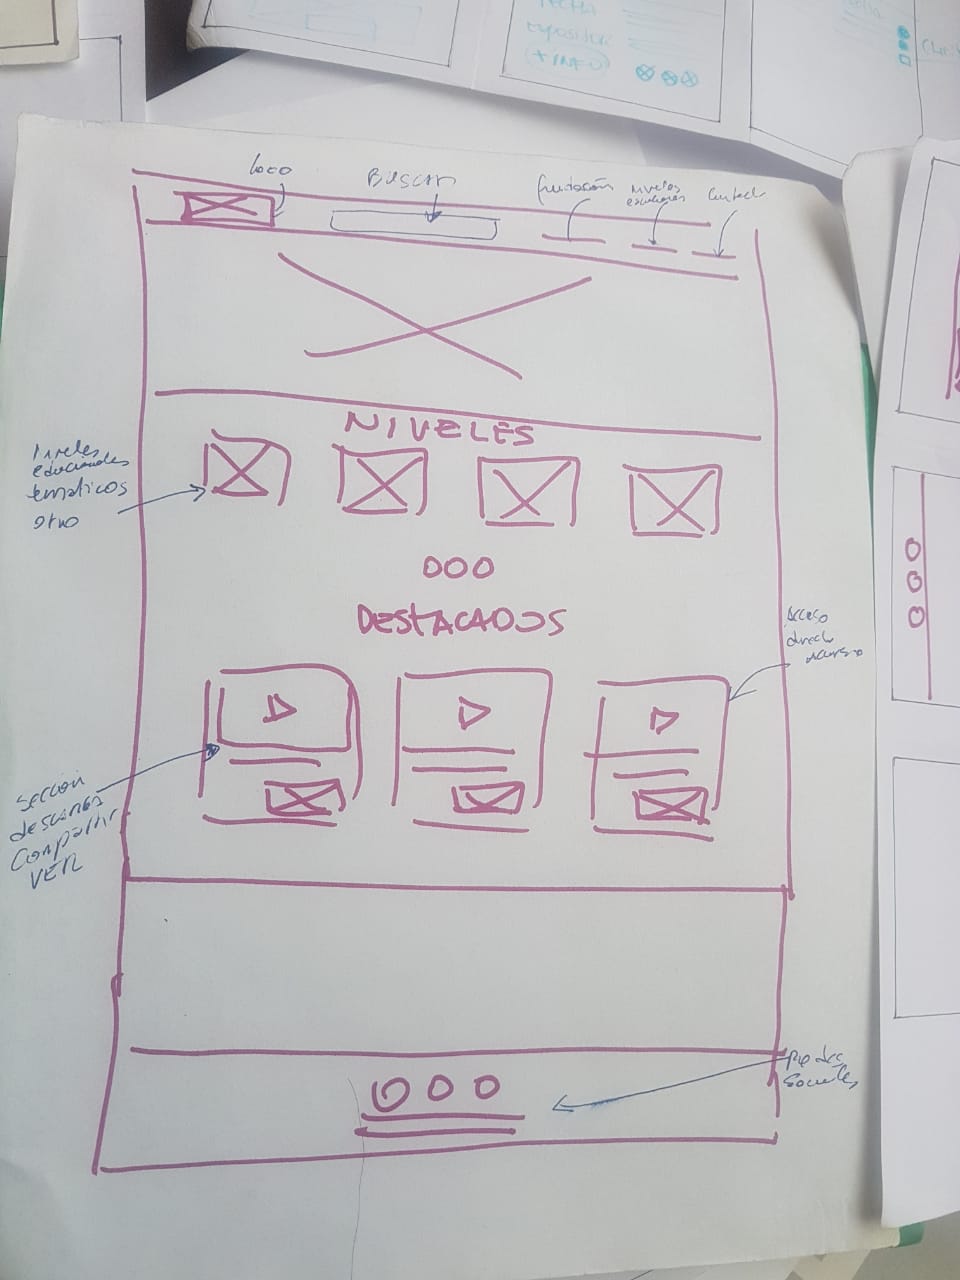 FECHA
Expositor
(+INFO)
LOGO
BUSCAR
fundación
Niveles
NIVELES
Niveles
educacionales
temáticos
otro
DESTACADOS
Acceso
directo
recurso
Sección
descarga
Compartir
VER
Redes
Sociales